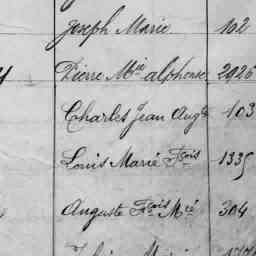 Joseph Marie 102
Pierre Mie alphonse 2926
Charles Jean Augte 103
Louis Marie Fcois 1335
Auguste Fcois Mie 304